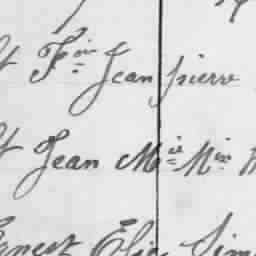 t Fin Jean pierre
t Jean Mie Min
Ernest Elie Sim